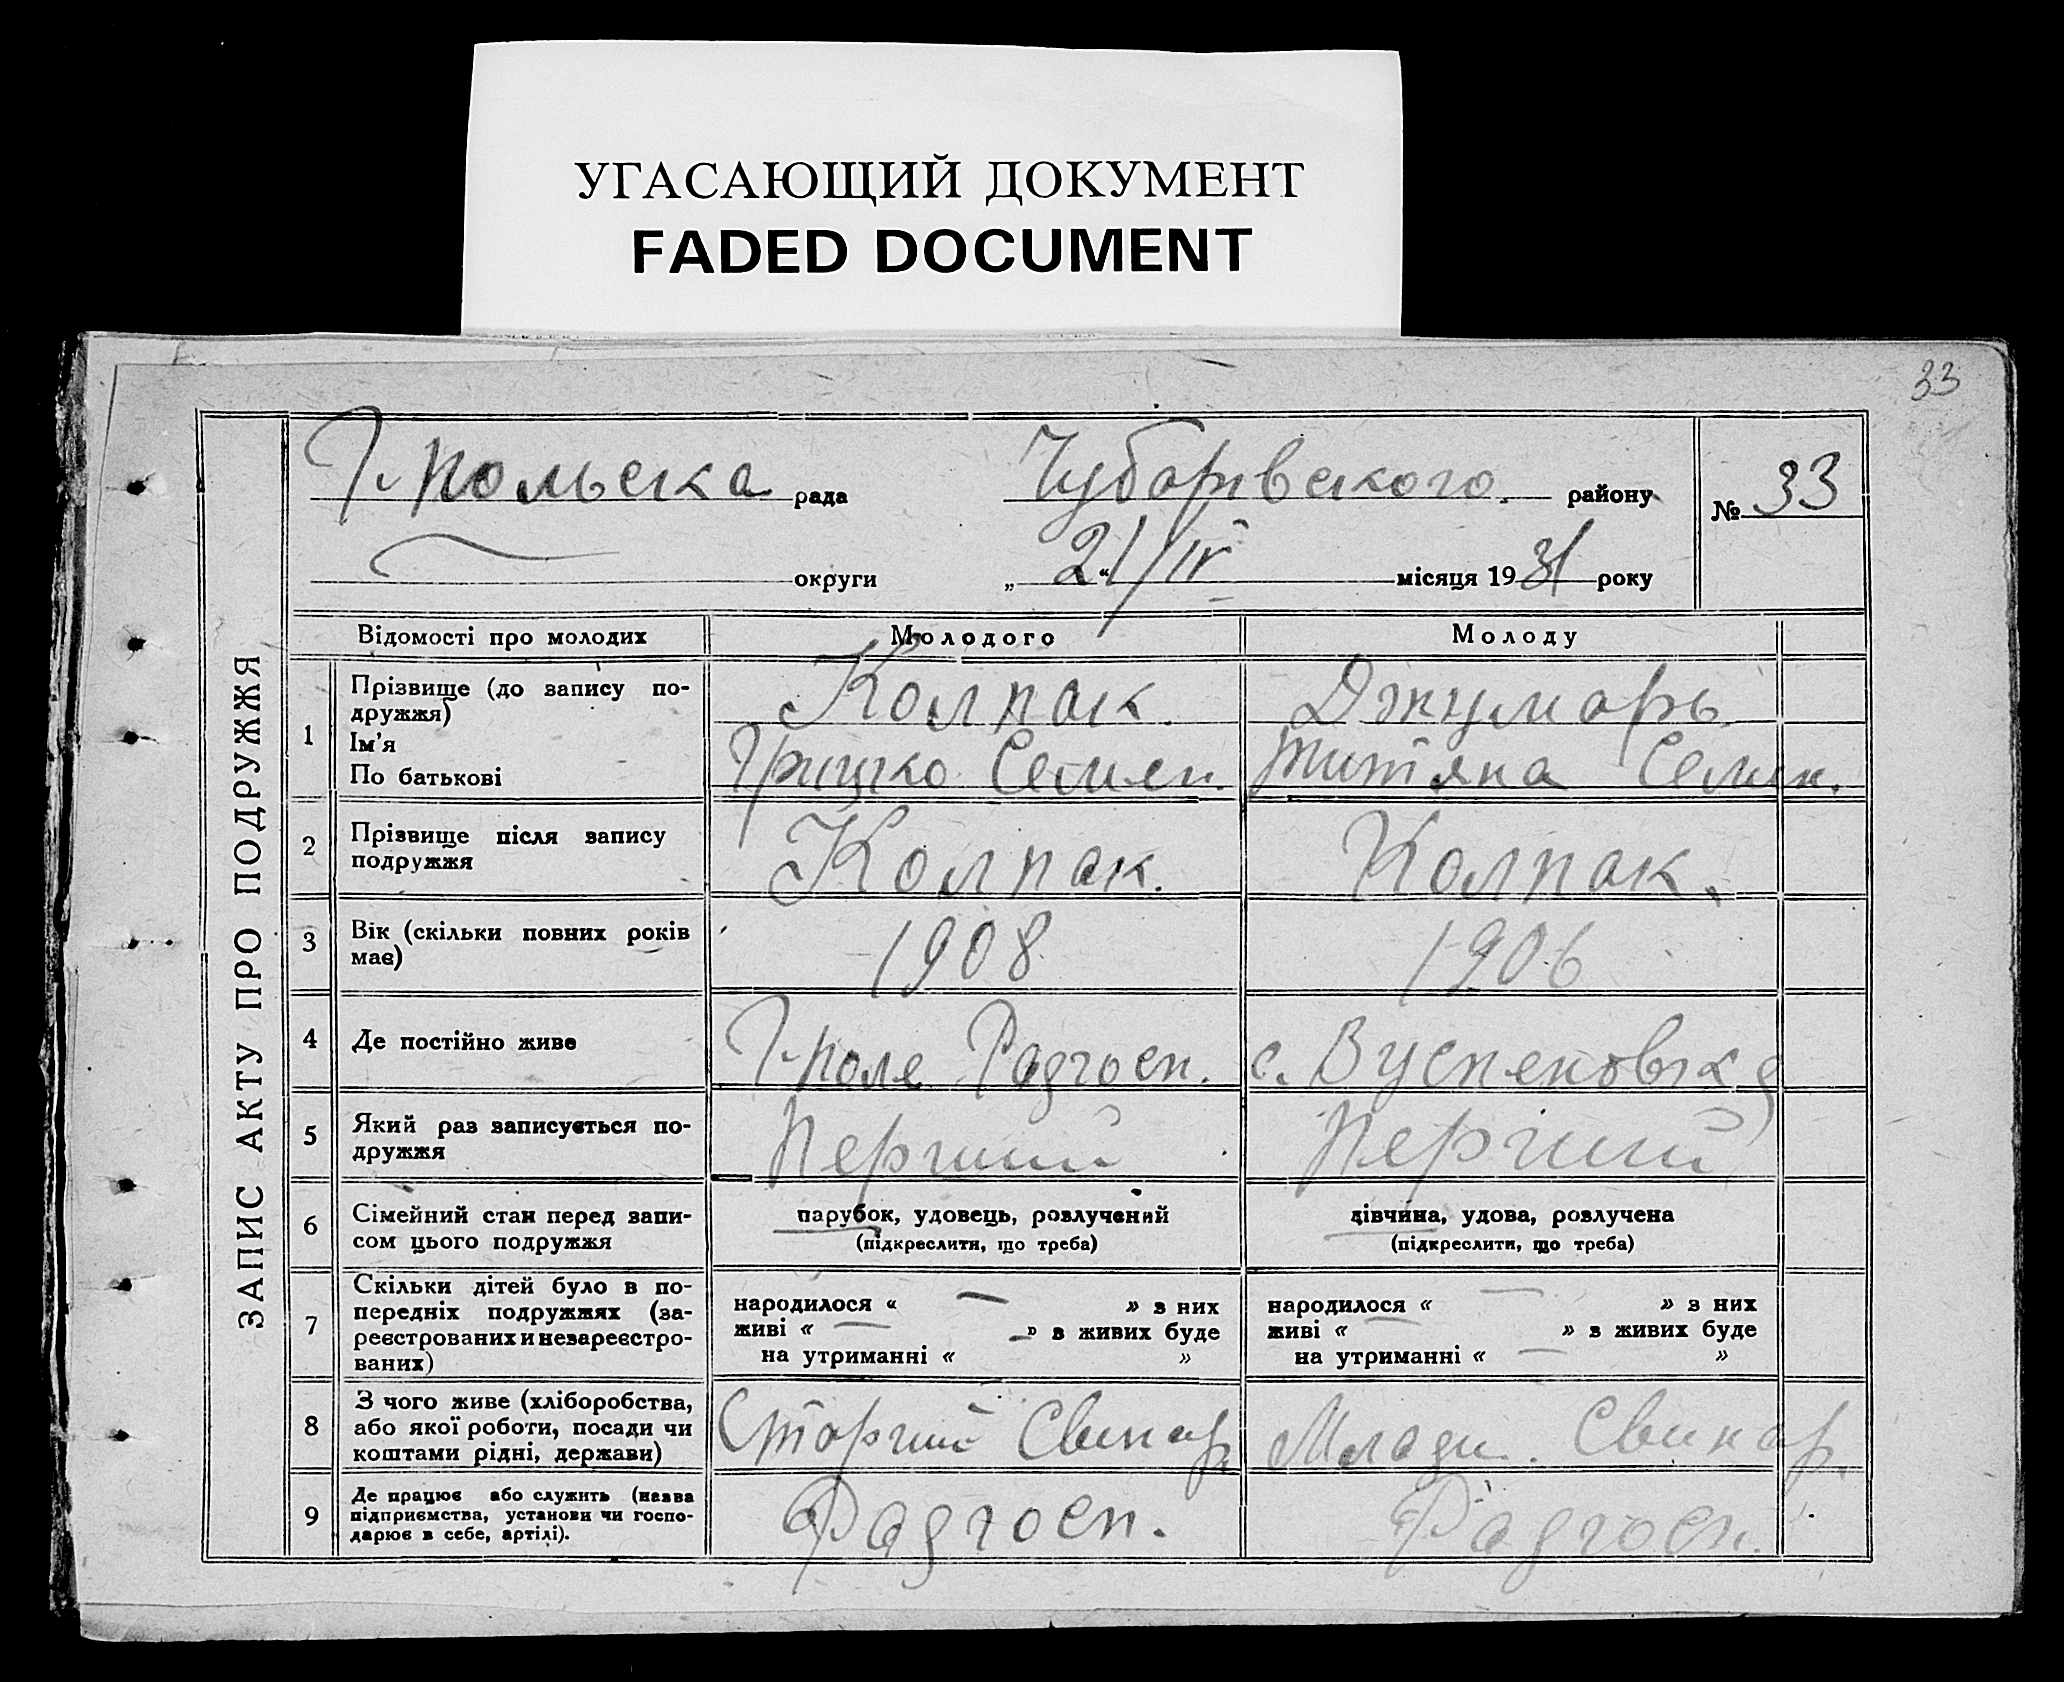 УГАСАЮЩИЙ ДОКУМЕНТ
FADED DOCUMENT
33
ЗАПИС АКТУ ПРО ПОДРУЖЖЯ
Г-польська рада Чубарівского району № 33
округи „21“/IV місяця 1931 року
Відомості про молодих Молодого Молоду
1 Прізвище (до запису по-
дружжя) Колпак Джумарь
Ім'я
По батькові Грицько Семен. Титяна Семен.
2 Прізвище після запису
подружжя Колпак. Колпак.
3 Вік (скільки повних років
має) 1908 1906
4 Де постійно живе Г-поле Радгосп. с. Вуспеновка
5 Який раз записується по-
дружжя Перший Перший
6 Сімейний стан перед запи-
сом цього подружжя парубок, удовець, розлучений
(підкреслити, що треба) дівчина, удова, розлучена
(підкреслити, що треба)
7 Скільки дітей було в по-
передніх подружжях (за-
реєстрованих и незареєстро-
ваних) народилося « — » з них
живі « — » в живих буде
на утриманні « »
народилося « — » з них
живі « — » в живих буде
на утриманні « — »
8 З чого живе (хліборобства,
або якої роботи, посади чи
коштами рідні, держави) Старший Свинар. Млади. Свинар.
9 Де працює або служить (назва
підприємства, установи чи госпо-
дарює в себе, артілі). Радгосп. Радгосп.